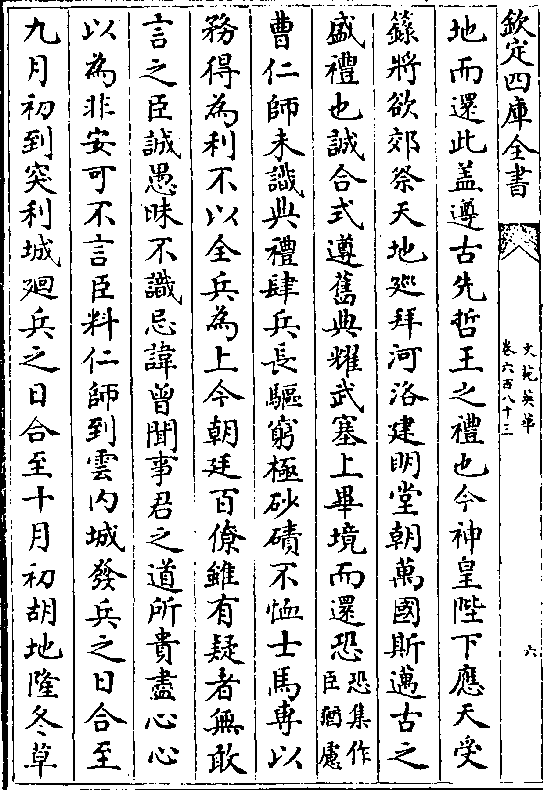 欽定四庫全書
文苑英華
卷六百八十三
六
地而還此蓋遵古先哲王之禮也今神皇陛下應天受
籙將欲郊祭天地廵拜河洛建明堂朝萬國斯邁古之
盛禮也誠合式遵舊典耀武塞上畢境而還恐恐集作臣猶慮
曹仁師未識典禮肆兵長驅窮極砂磧不恤士馬專以
務得為利不以全兵為上今朝廷百僚雖有疑者無敢
言之臣誠愚昧不識忌諱曾聞事君之道所貴盡心心
以為非安可不言臣料仁師到雲内城發兵之日合至
九月初到突利城廻兵之日合至十月初胡地隆冬草